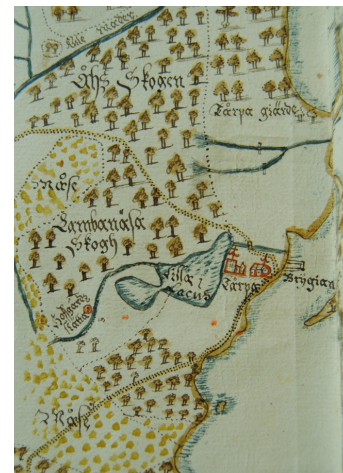 Åhs Skogen
Tårpa giärde
Måse
Lambanåsa
Skogh
Lilla
Lacus
Tårpa
Brygian
Måse